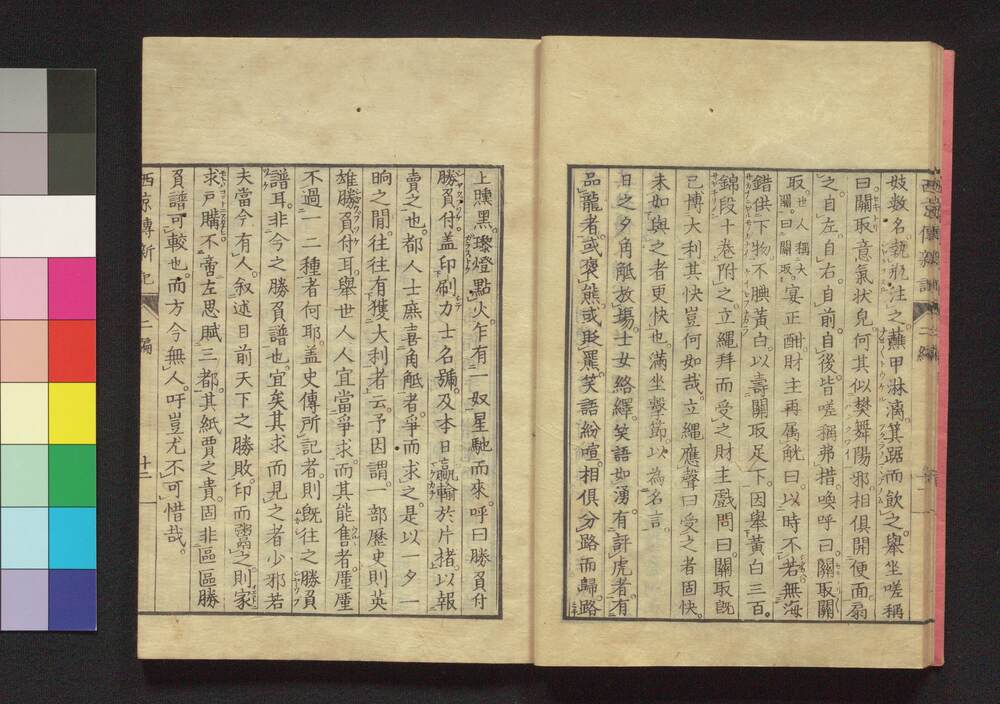 妓數名競瓶注之蘸甲淋漓箕踞而飲之擧坐嗟稱
曰關取意氣狀皃何其似樊舞陽邪相倶開便面扇
之自左自右自前自後皆嗟稱弗措喚呼曰關取關
取世人稱大關曰關取宴正酣財主再属觥曰以時不若無海
錯供下物不腆黄白以壽關取足下因擧黄白三百
錦段十卷附之立縄拜而受之財主戲問曰關取既
己博大利其快豈何如哉立縄應聲曰受之者固快
未如與之者更快也滿坐擊節以為名言
日之夕角觝放場士女絡繹笑語如湧有評虎者有
品龍者或褒熊或貶羆笑語紛喧相倶分路而歸路
上曛黑瓈燈點火乍有一奴星馳而來呼曰勝負付
勝負付盖印刷力士名號及本日贏輸於片楮以報
賣之也都人士庶喜角觝者爭而求之是以一夕一
晌之間往往有獲大利者云予因謂一部歷史則英
雄勝負付耳擧世人人宜當爭求而其能售者厪厪
不過一二種者何耶盖史傳所記者則既往之勝負
譜耳非今之勝負譜也宜矣其求而見之者少邪若
夫當今有人叙述目前天下之勝敗印而鬻之則家
求戸購不啻左思賦三都其紙賈之貴固非區區勝
負譜可較也而方今無人吁豈尤不可惜哉
二編
十二